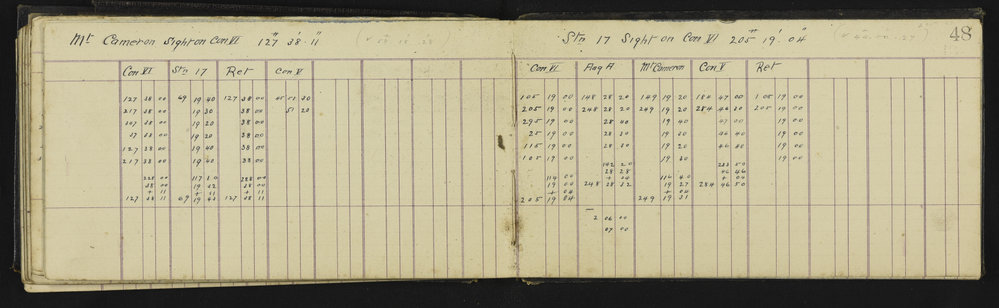 Mt Cameron Sight on Con VI 127° 38' 11"
Con VI Stn 17 Ret Con V
127 38 00 69 19 40 127 38 00 51 30
217 38 00 19 30 38 00 51 20
38 00 19 20 38 00
37 38 00 19 20 38 00
127 38 00 19 40 38 00
217 38 00 19 40 38 00
228 00 117 228 00
38 00 19 32 38 00
+ 11 + 11 + 11
127 38 11 69 19 43 127 38 11
Stn 17 Sight on Con VI 205° 19' 04"
48
Con VI Aug A Mt Cameron Con V Ret
105 19 00 148 28 20 149 19 20 184 47 00 105 19 00
205 19 00 248 28 20 249 19 20 284 46 205 19 00
295 19 00 28 40 19 40 47 00 19 00
25 19 00 28 19 46 40 19 00
115 19 00 28 19 20 46 19 00
105 19 00 19 19 00
142 20
28 28 46
114 00 + 04 40 + 04
19 00 248 28 32 19 27 284 46 50
+ 04 + 04
205 19 04 249 19 31
2 06 00
07 00